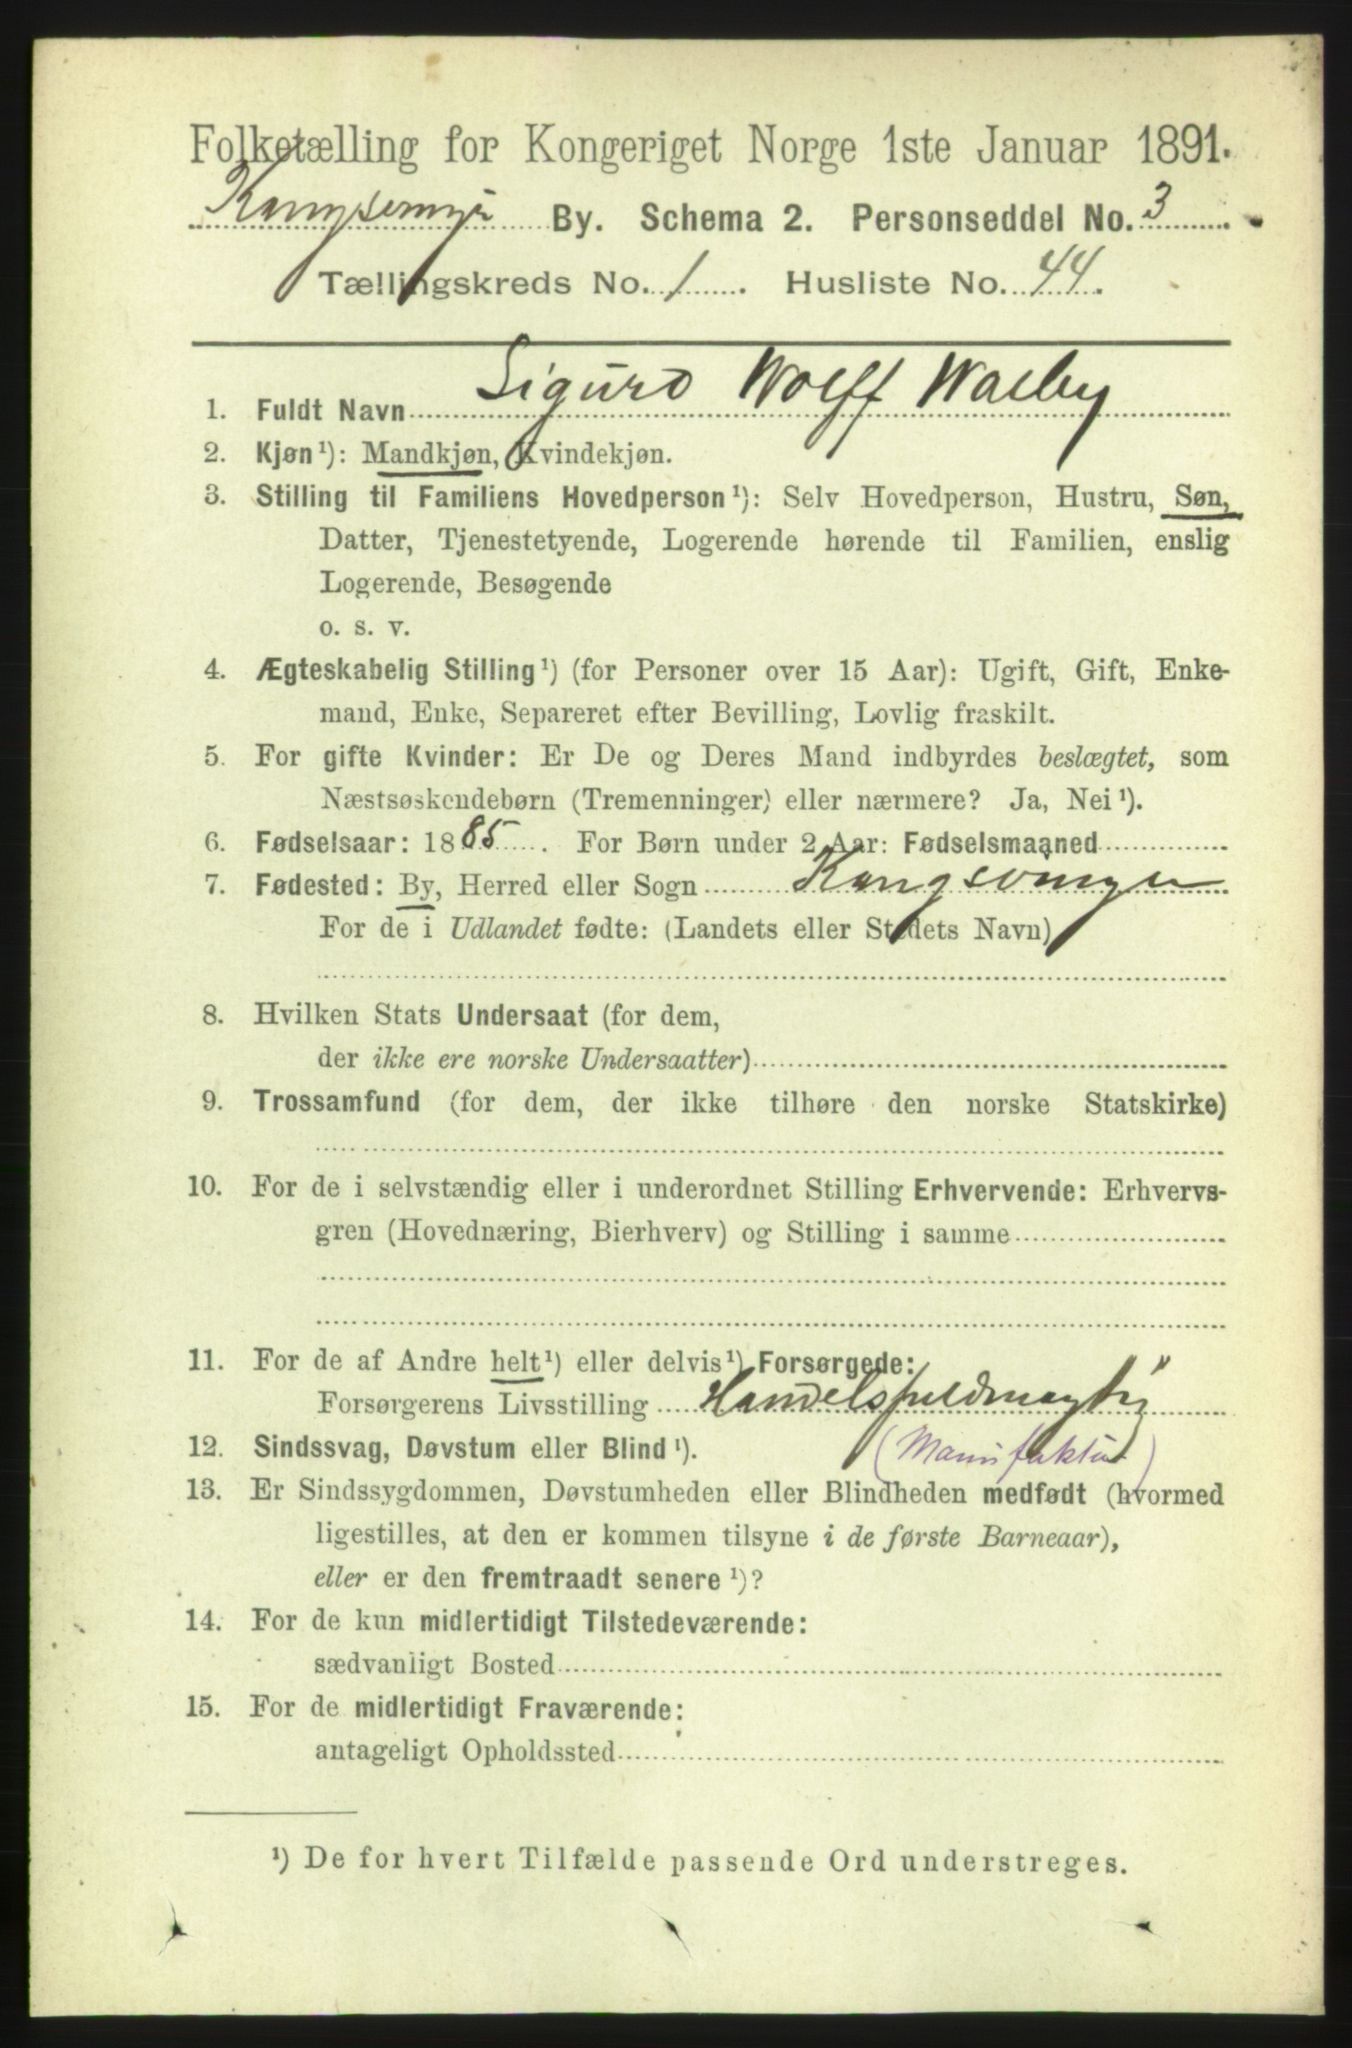 Folketælling for Kongeriget Norge 1ste Januar 1891.
Kongsvinger By. Schema 2. Personseddel No. 3
Tællingskreds No. 1. Husliste No. 44.
1. Fuldt Navn Sigurd Wolff Walby
2. Kjøn¹): Mandkjøn, Kvindekjøn.
3. Stilling til Familiens Hovedperson¹): Selv Hovedperson, Hustru, Søn,
Datter, Tjenestetyende, Logerende hørende til Familien, enslig
Logerende, Besøgende
o. s. v.
4. Ægteskabelig Stilling¹) (for Personer over 15 Aar): Ugift, Gift, Enke-
mand, Enke, Separeret efter Bevilling, Lovlig fraskilt.
5. For gifte Kvinder: Er De og Deres Mand indbyrdes beslægtet, som
Næstsøskendebørn (Tremenninger) eller nærmere? Ja, Nei¹).
6. Fødselsaar: 1885. For Børn under 2 Aar: Fødselsmaaned
7. Fødested: By, Herred eller Sogn Kongsvinger
For de i Udlandet fødte: (Landets eller Stedets Navn)
8. Hvilken Stats Undersaat (for dem,
der ikke ere norske Undersaatter)
9. Trossamfund (for dem, der ikke tilhøre den norske Statskirke)
10. For de i selvstændig eller i underordnet Stilling Erhvervende: Erhvervs-
gren (Hovednæring, Bierhverv) og Stilling i samme
11. For de af Andre helt¹) eller delvis¹) Forsørgede:
Forsørgerens Livsstilling Handelsfuldmægtig
12. Sindssvag, Døvstum eller Blind¹). (Manufaktur)
13. Er Sindssygdommen, Døvstumheden eller Blindheden medfødt (hvormed
ligestilles, at den er kommen tilsyne i de første Barneaar),
eller er den fremtraadt senere¹)?
14. For de kun midlertidigt Tilstedeværende:
sædvanligt Bosted
15. For de midlertidigt Fraværende:
antageligt Opholdssted
¹) De for hvert Tilfælde passende Ord understreges.